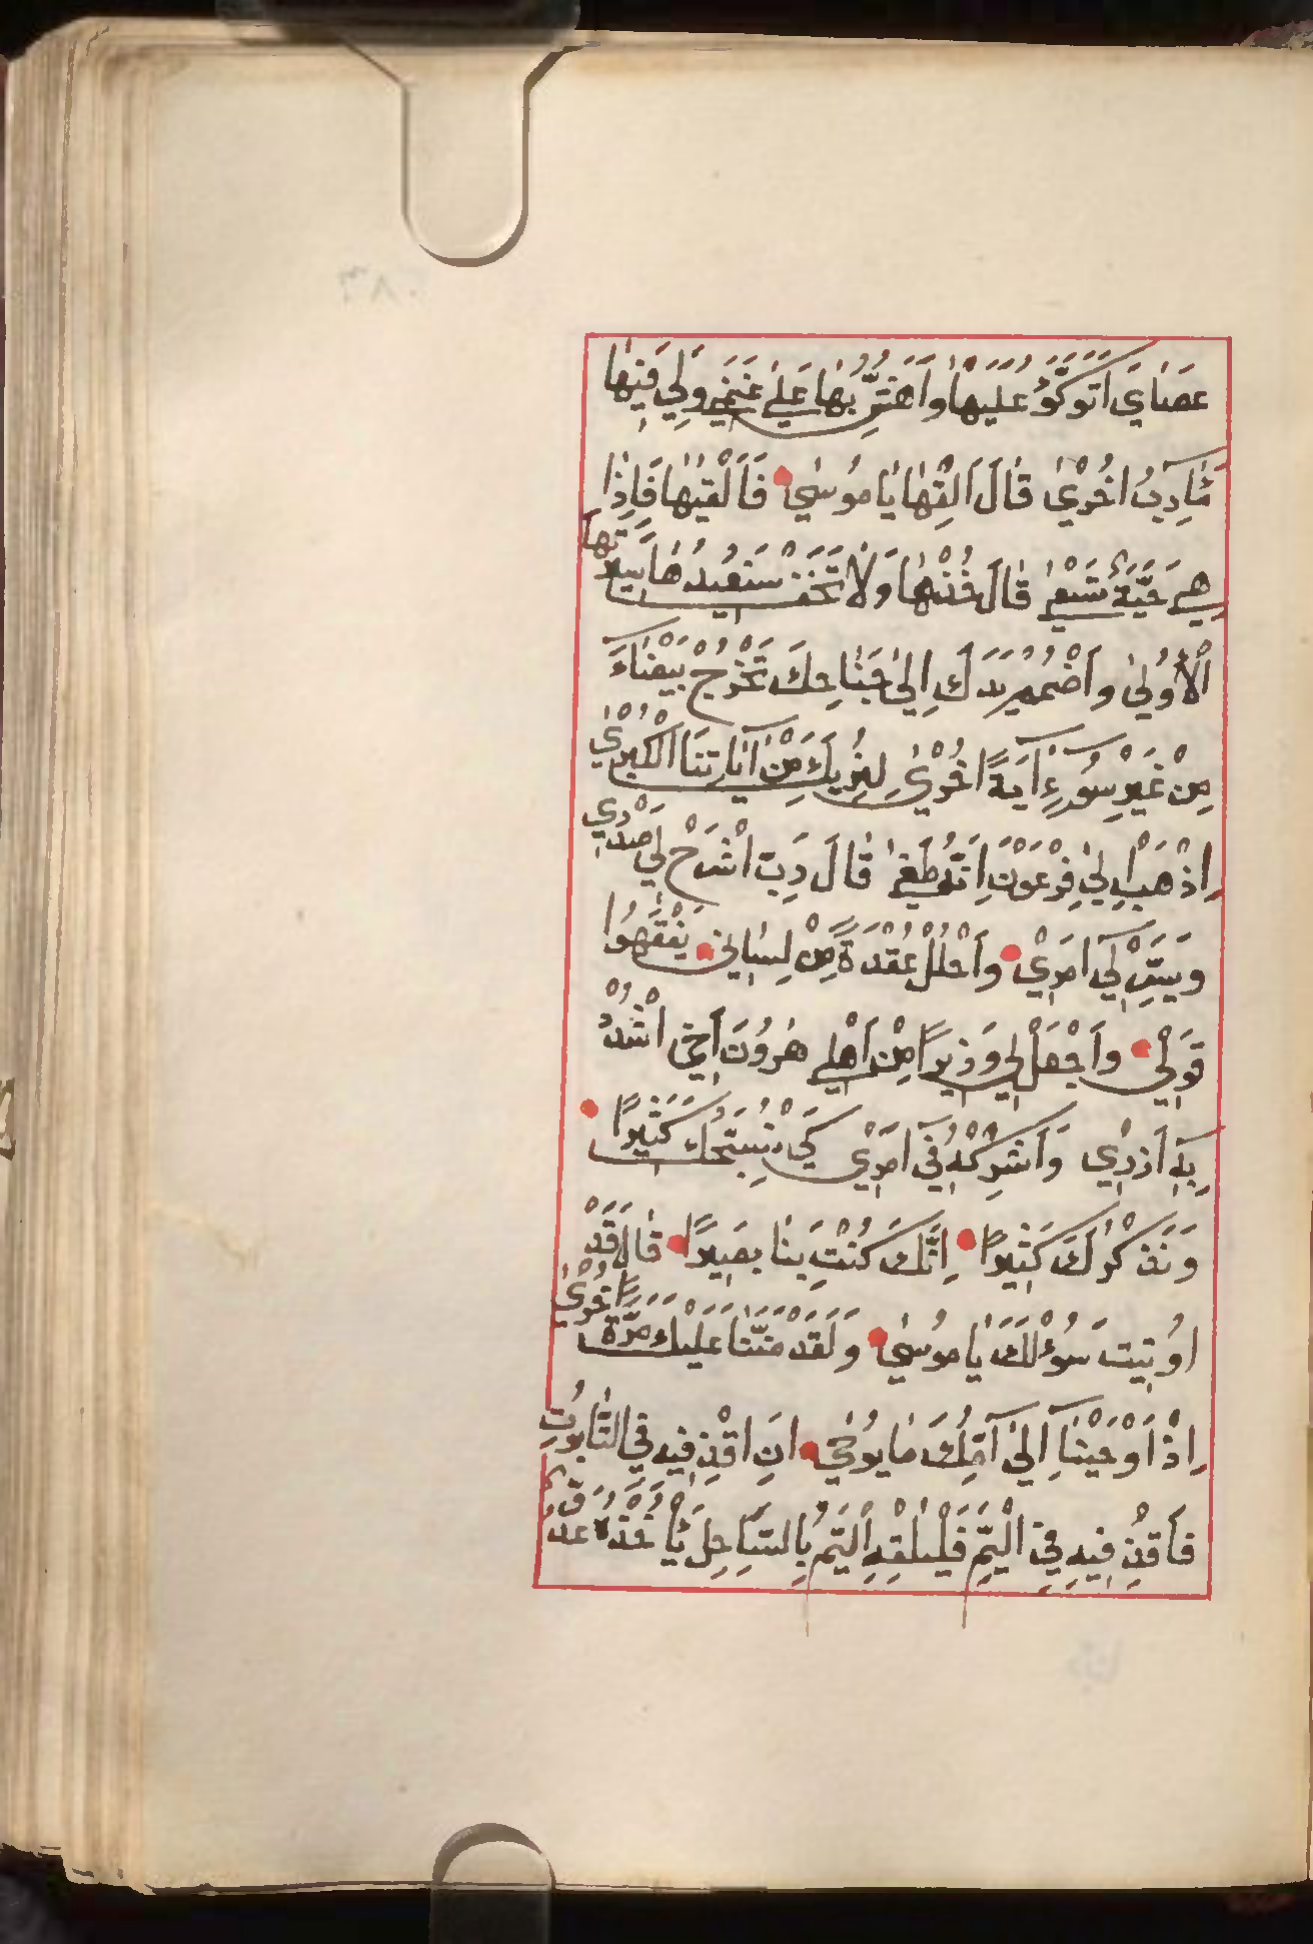 عَصَايَ اَتَوَكَّؤُ عَلَيْهَا وَاَهُشُّ بِهَا عَلٰى غَنَمِي وَلِيَ فِيهَا
مَآرِبُ اُخْرٰى قَالَ اَلْقِهَا يَا مُوسٰى فَاَلْقٰيهَا فَاِذَا
هِيَ حَيَّةٌ تَسْعٰى قَالَ خُذْهَا وَلَا تَخَفْ سَنُعِيدُهَا سِيرَتَهَا
الْاُولٰى وَاضْمُمْ يَدَكَ اِلٰى جَنَاحِكَ تَخْرُجْ بَيْضَآءَ
مِنْ غَيْرِ سُوءٍ اٰيَةً اُخْرٰى لِنُرِيَكَ مِنْ اٰيَاتِنَا الْكُبْرٰى
اِذْهَبْ اِلٰى فِرْعَوْنَ اِنَّهُ طَغٰى قَالَ رَبِّ اشْرَحْ لِي صَدْرِي
وَيَسِّرْ لِي اَمْرِي وَاحْلُلْ عُقْدَةً مِنْ لِسَانِي يَفْقَهُوا
قَوْلِي وَاجْعَلْ لِي وَزِيرًا مِنْ اَهْلِي هٰرُونَ اَخِي اشْدُدْ
بِهٖ اَزْرِي وَاَشْرِكْهُ فِي اَمْرِي كَيْ نُسَبِّحَكَ كَثِيرًا
وَنَذْكُرَكَ كَثِيرًا اِنَّكَ كُنْتَ بِنَا بَصِيرًا قَالَ قَدْ
اُوتِيتَ سُؤْلَكَ يَا مُوسٰى وَلَقَدْ مَنَنَّا عَلَيْكَ مَرَّةً اُخْرٰى
اِذْ اَوْحَيْنَا اِلٰى اُمِّكَ مَا يُوحٰى اَنِ اقْذِفِيهِ فِي التَّابُوتِ
فَاقْذِفِيهِ فِي الْيَمِّ فَلْيُلْقِهِ الْيَمُّ بِالسَّاحِلِ يَأْخُذْهُ عَدُوٌّ